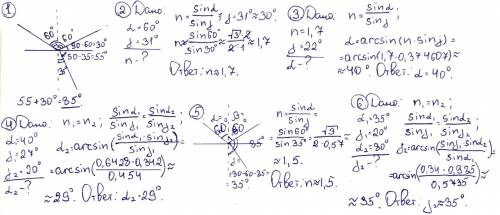 ①
60° 60°
90-60=30°
90-35=55°
35°
55+30=85°
② Дано:
d=60°
j=31°
n-?
n=sind/sinj; j=31°≈30°.
n≈sin60°/sin30°≈√3·2/2·1≈1,7
Ответ: n≈1,7.
③ Дано:
n=1,7
j=22°
d-?
n=sind/sinj;
d=arcsin(n·sinj)=
=arcsin(1,7·0,374607)≈
≈40°. Ответ: d=40°.
④ Дано:
d₁=40°
j₁=27°
j₂=20°
d₂-?
n₁=n₂; sind₁/sinj₁=sind₂/sinj₂;
d₂=arcsin(sind₁·sinj₂/sinj₁)=
=arcsin(0,6428·0,342/0,454)≈
≈29°. Ответ: d₂=29°.
⑤
d=60°
60° 60°
85°
j=180-60-85=
=35°.
n=sind/sinj=
=sin60°/sin35°=√3/2·0,57≈
≈1,5.
Ответ: n≈1,5.
⑥ Дано:
d₁=35°
j₁=20°
d₂=80°
j₂-?
n₁=n₂;
sind₁/sinj₁=sind₂/sinj₂;
j₂=arcsin(sinj₁·sind₂/sind₁)=
=arcsin(0,34·0,985/0,5735)≈
≈35°. Ответ: j₂≈35°.